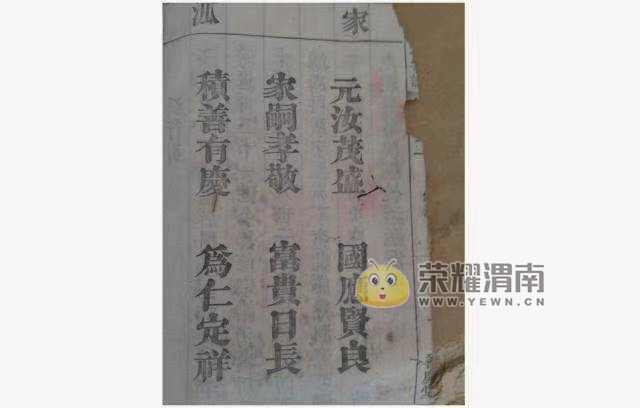 家
元汝茂盛 國府賢良
家嗣孝敬 富貴日長
積善有慶 爲仁定祥
荣耀渭南
WWW.YEWN.CN